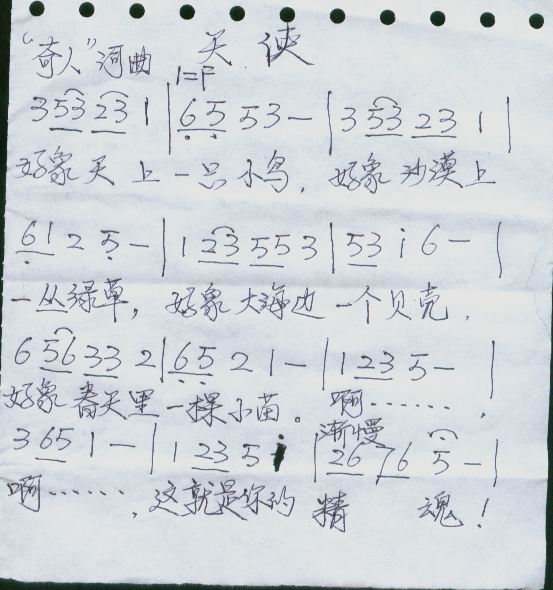 天使
“奇人”词曲
1=F
3 53 23 1 | 65 53 - | 3 53 23 1 |
好象天上一只小鸟，好象沙漠上
61 2 5 - | 1 23 55 3 | 53 i 6 - |
一丛绿草，好象大海边一个贝壳，
6 56 33 2 | 65 2 1 - | 1 23 5 - |
好象春天里一棵小苗。啊……，
渐慢
3 65 1 - | 1 23 5 i | 26 76 5 - |
啊……，这就是你的精魂！